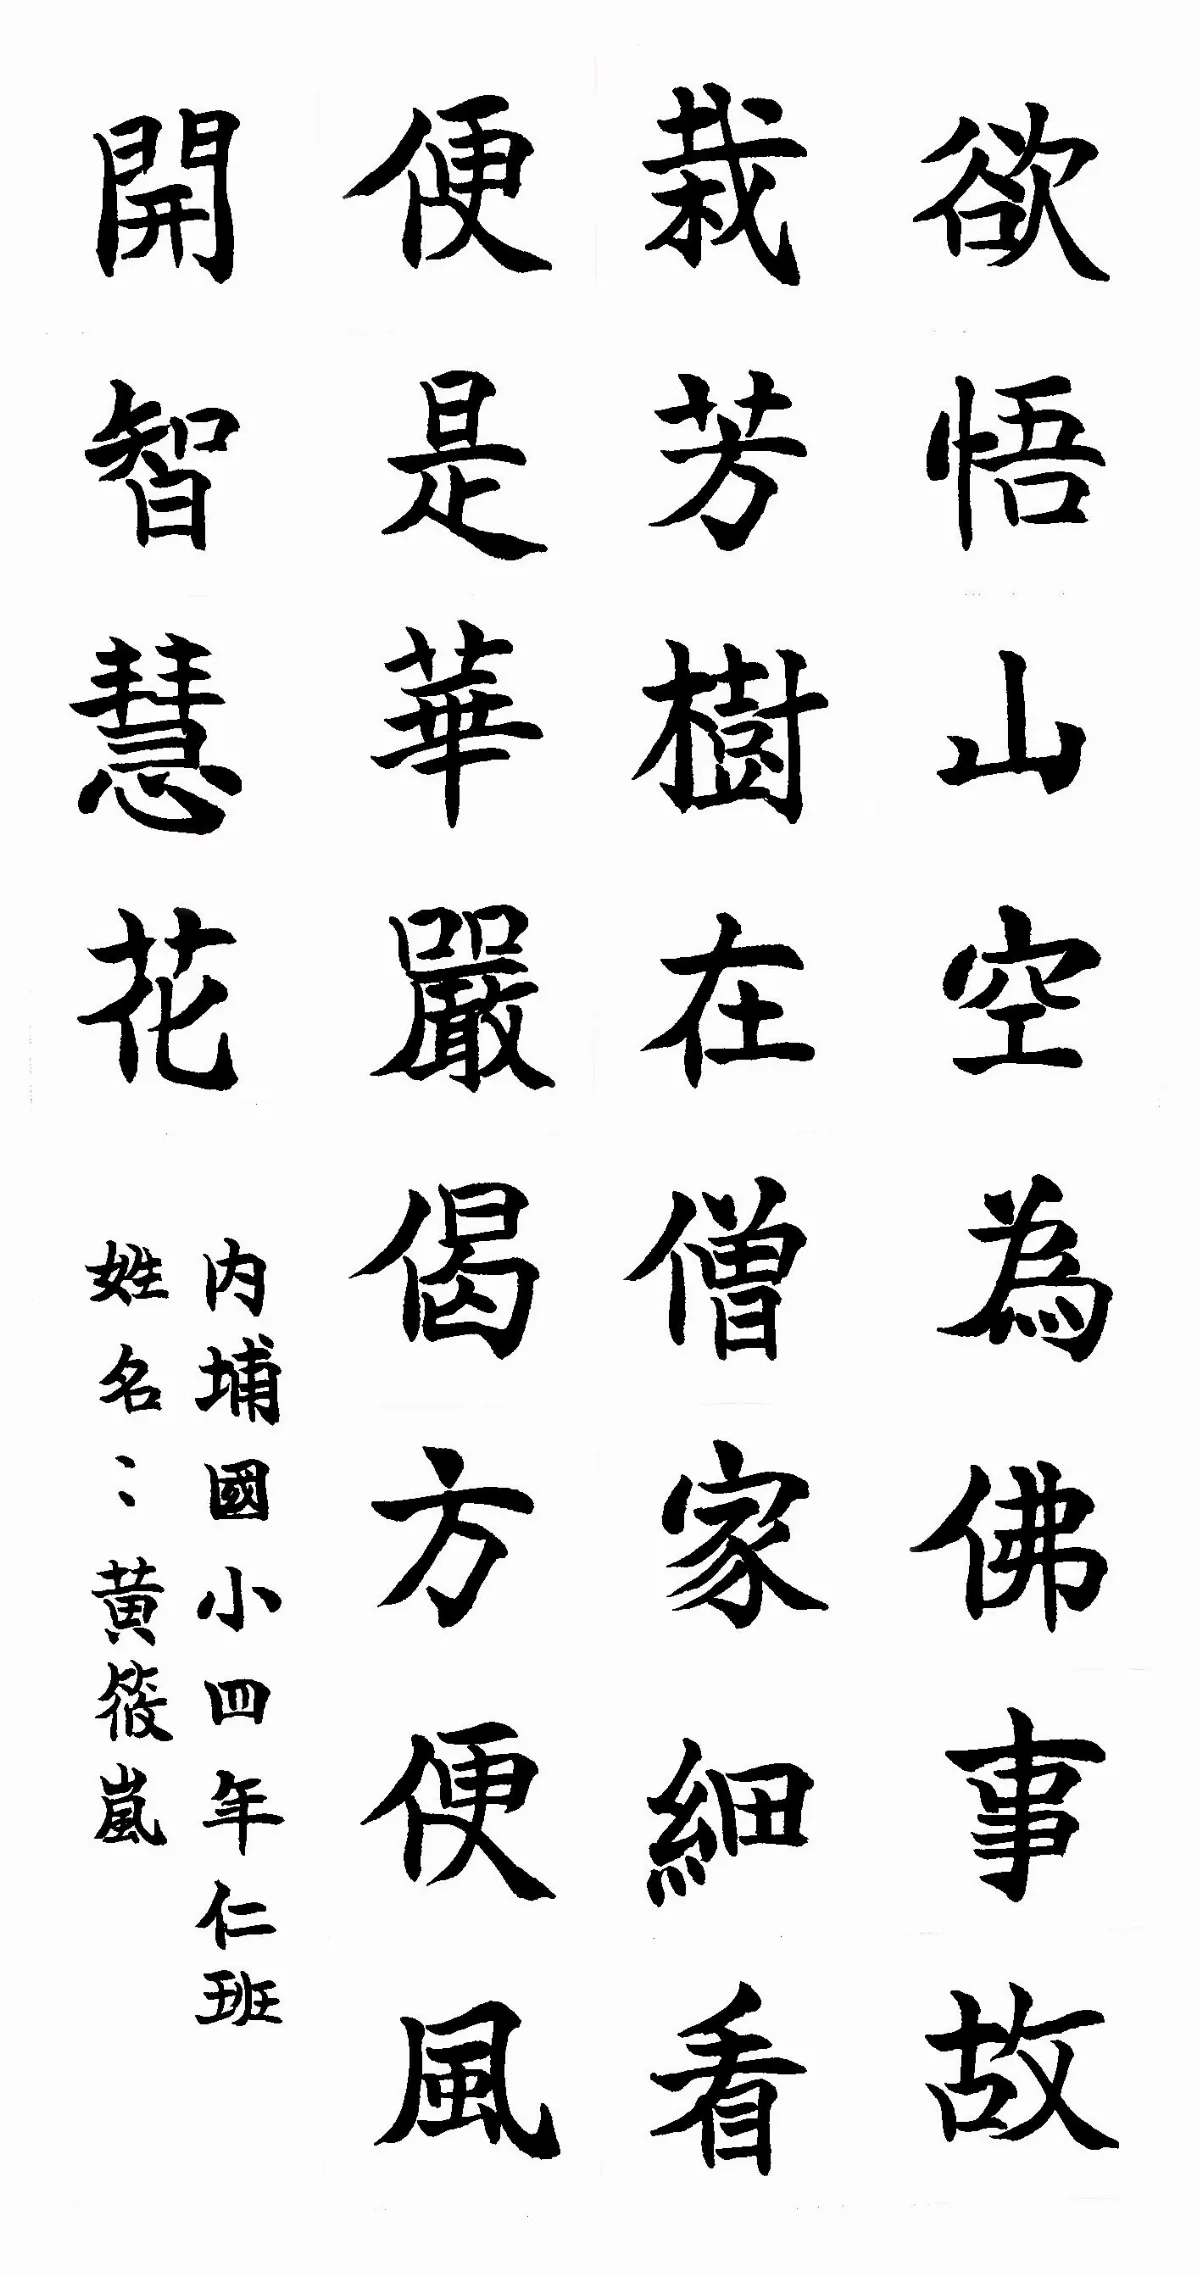 欲悟山空為佛事故
栽芳樹在僧家細看
便是華嚴偈方便風
開智慧花
内埔國小四年仁班
姓名：黃筱嵐